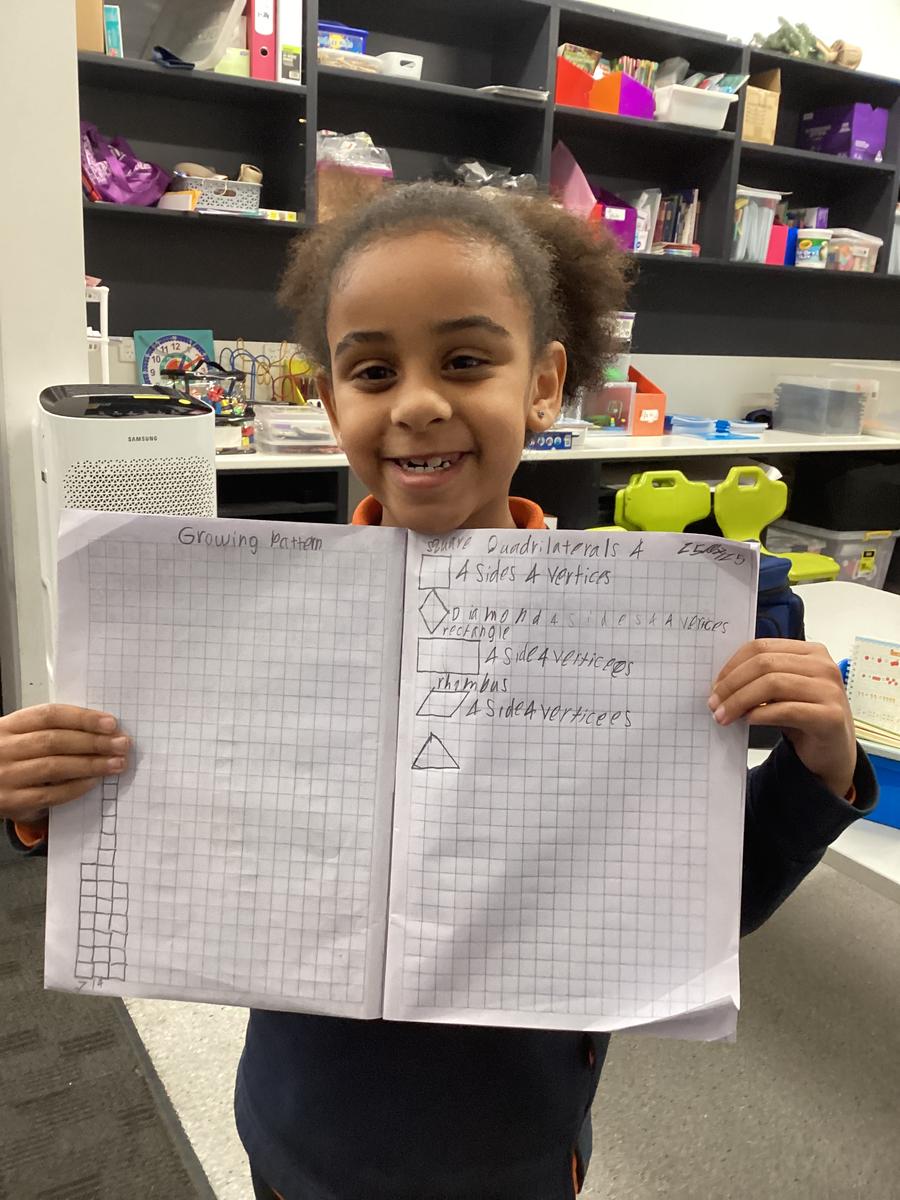 SAMSUNG
Growing Pattern
square Quadrilaterals 4
4 sides 4 vertices
Diamond 4 sides 4 4 verices
rectangle
4 side 4 verticees
rhombus
4 side 4 verticees
7 14
11 12
10
9